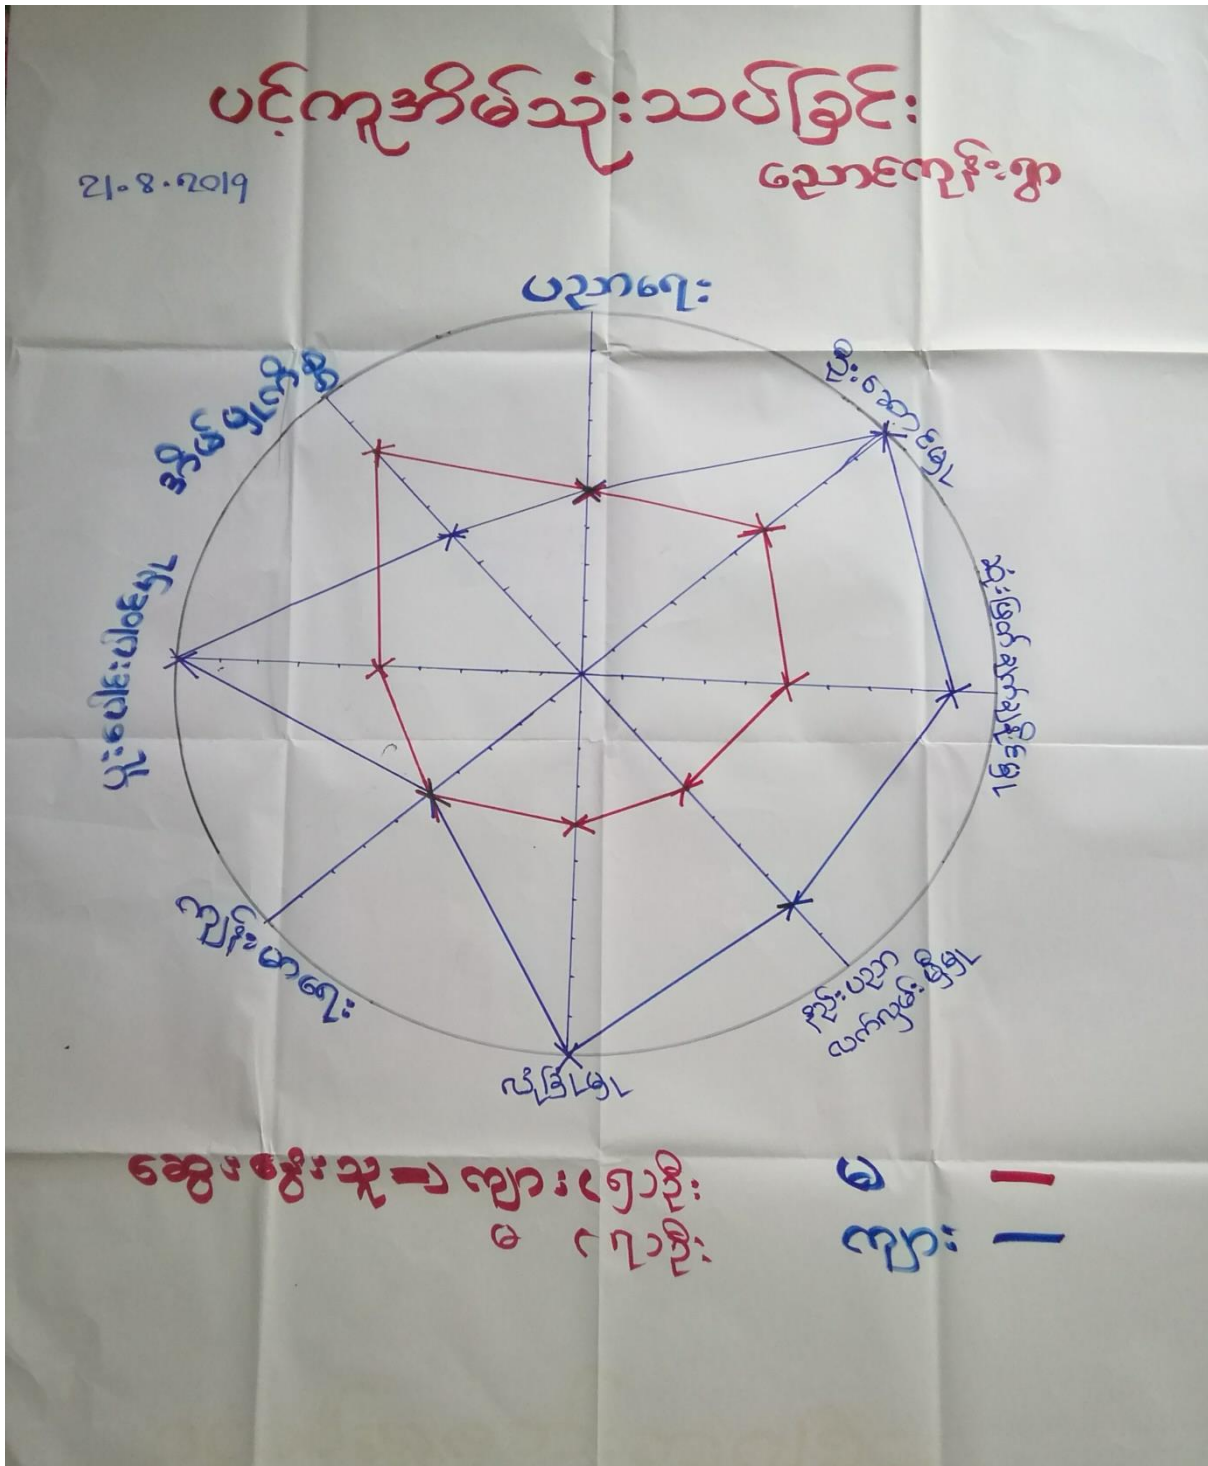 ပင့်ကူအိမ်သုံးသပ်ခြင်း
ညောင်ကုန်းရွာ
21.8.2019
ပညာရေး
ဦးဆောင်မှု
ဆုံးဖြတ်ချက်ချနိုင်မှု
နည်းပညာ
လက်လှမ်းမှီမှု
လုံခြုံမှု
ကျန်းမာရေး
ပူးပေါင်းပါဝင်မှု
အိမ်မှုကိစ္စ
ဆွေးနွေးသူ → ကျား (၅) ဦး
မ (၇) ဦး
မ —
ကျား —